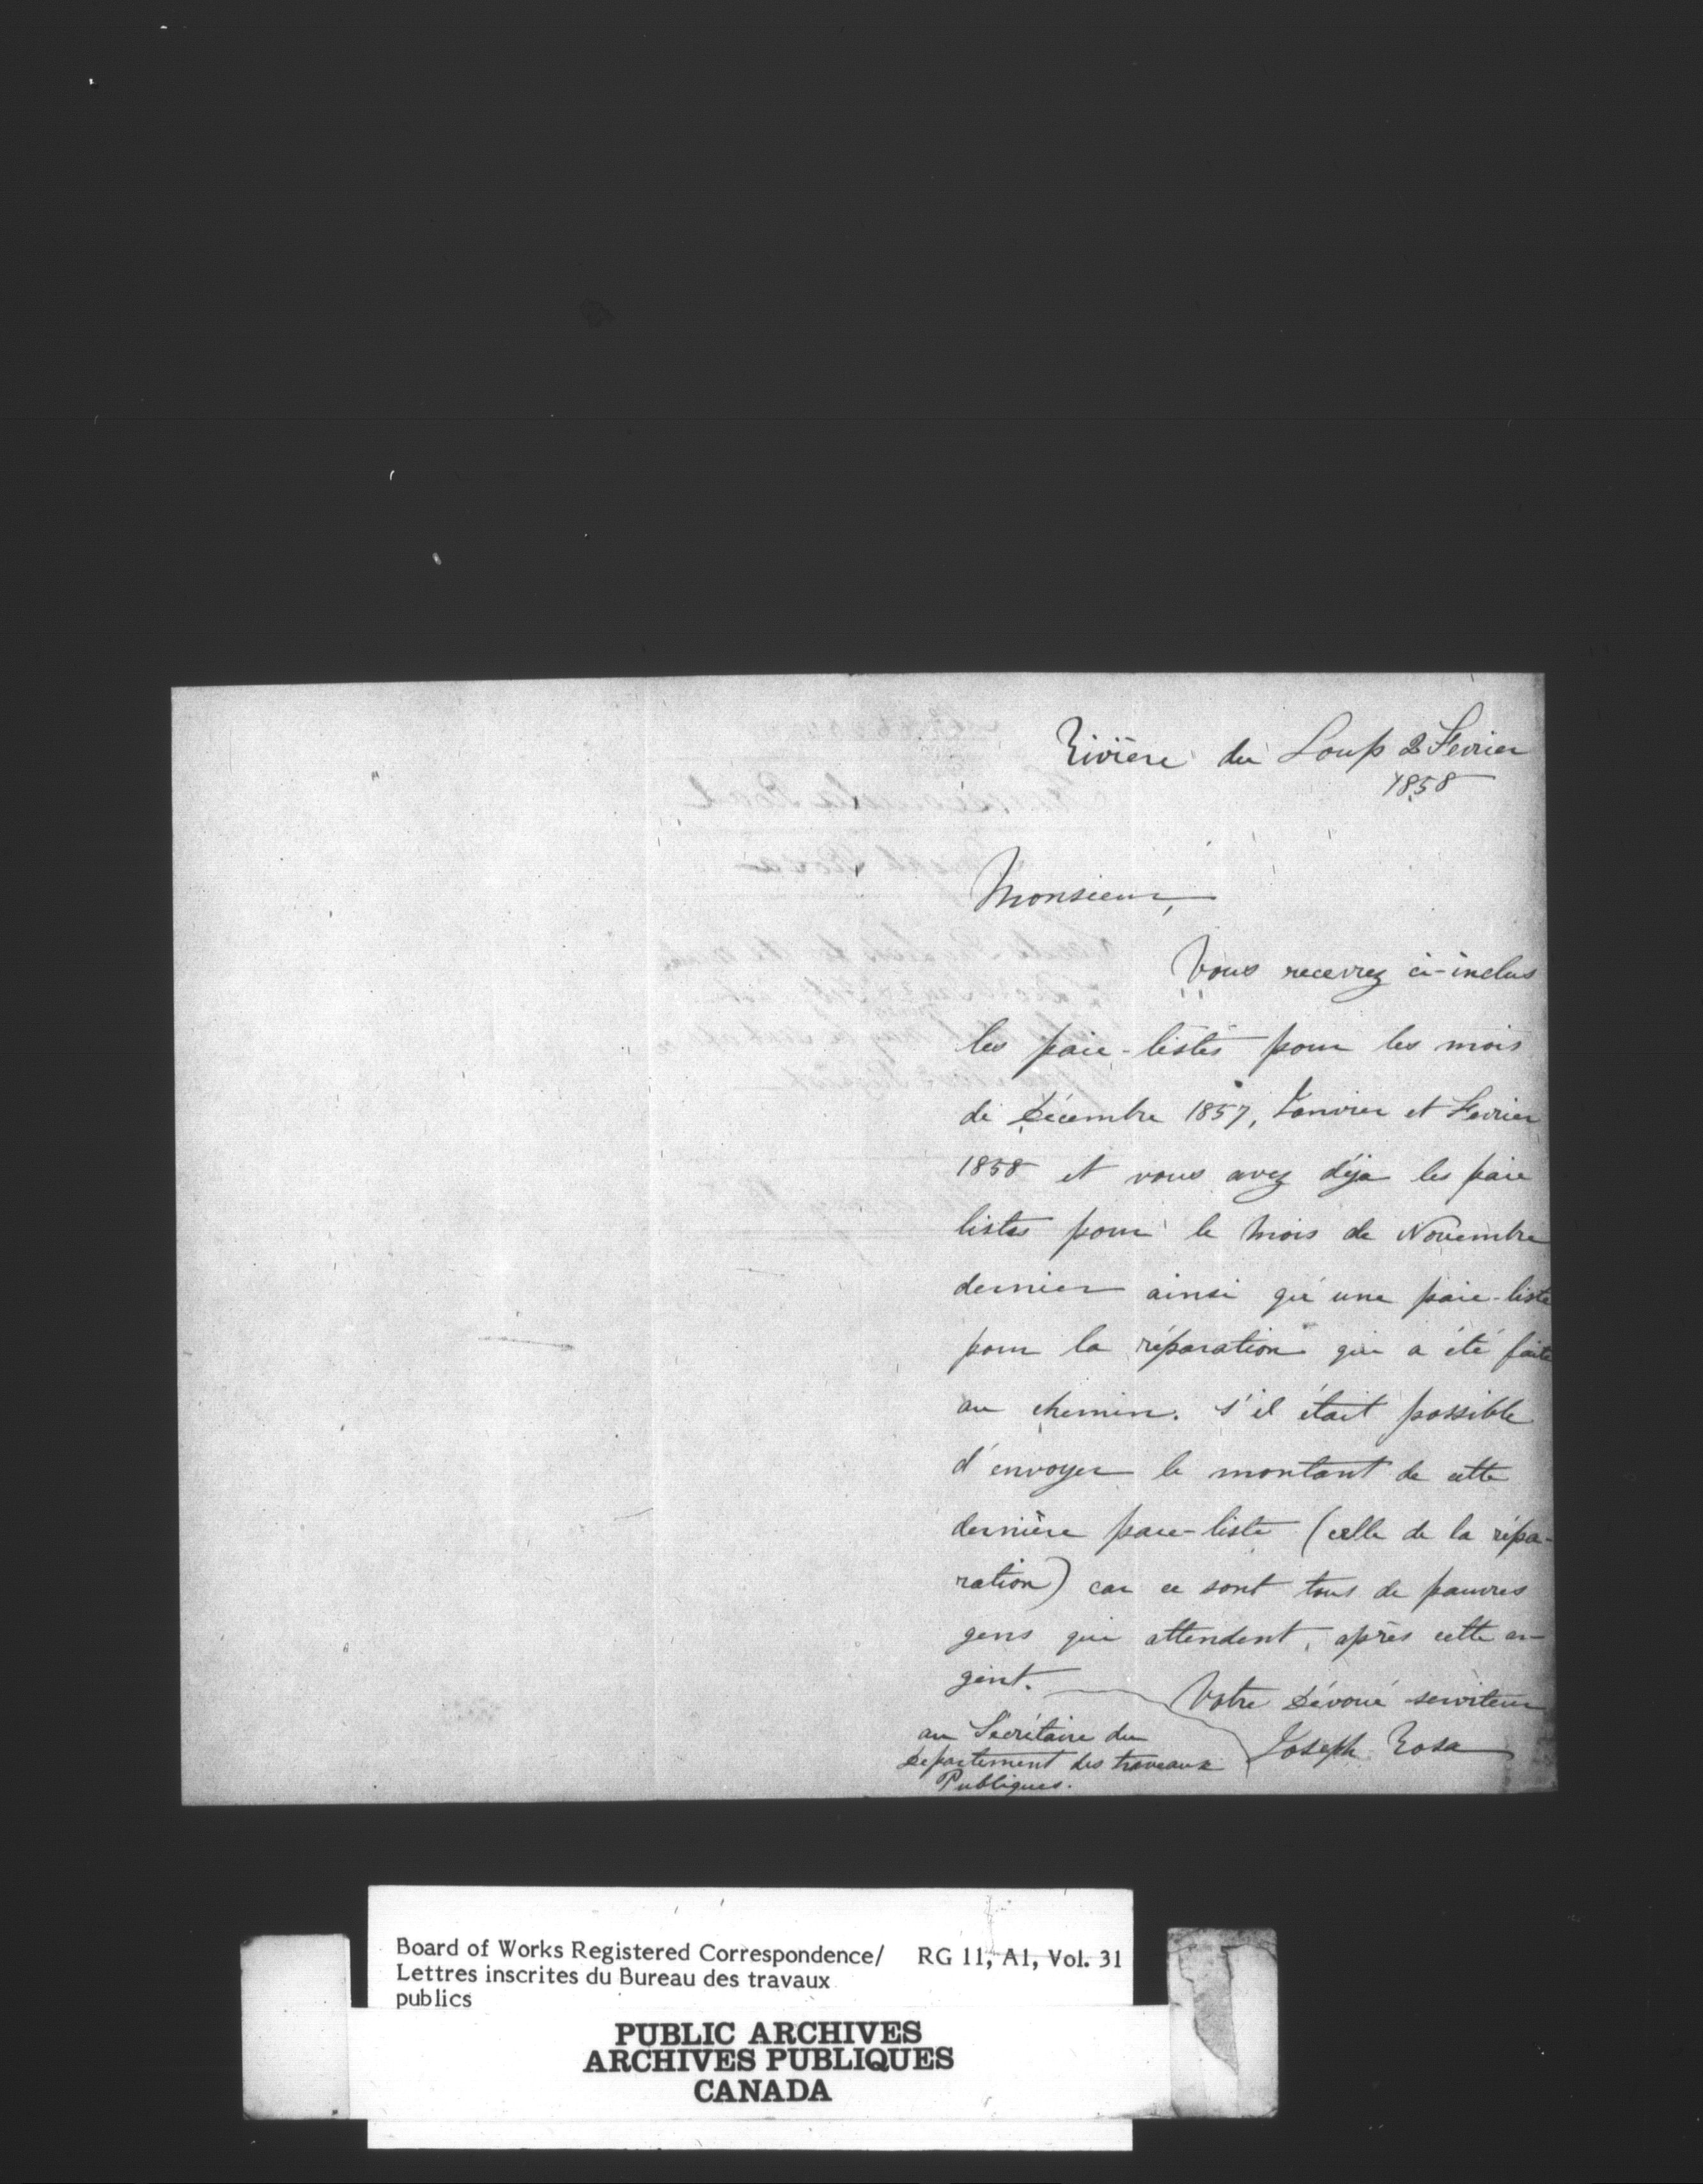 Rivière du Loup 2 Fevrier
1858
Monsieur,
Vous recevrez ci-inclus
les paie-listes pour les mois
de Décembre 1857, Janvier et Fevrier
1858 et vous avez déja les paie
listes pour le mois de Novembre
dernier ainsi qu'une paie-liste
pour la réparation qui a été faite
au chemin. s'il était possible
d'envoyer le montant de cette
dernière paie-liste (celle de la répa-
ration) car ce sont tous de pauvres
gens qui attendent, après cette ar-
gent.
Votre Dévoué serviteur
Joseph Rosa
au Secrétaire du
Departement des travaux
Publiques.
Board of Works Registered Correspondence/ RG 11, A1, Vol. 31
Lettres inscrites du Bureau des travaux
publics
PUBLIC ARCHIVES
ARCHIVES PUBLIQUES
CANADA